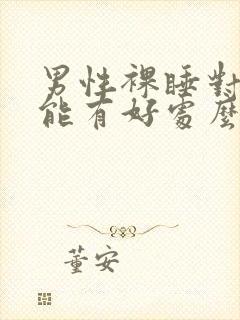 男性裸睡對
能有好處麼
董安